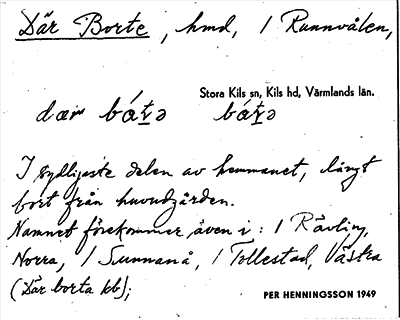 Där Borte, hmd, / Runnvålen,
Stora Kils sn, Kils hd, Värmlands län.
dær bá́tə bá́tə
I sydligaste delen av hemmanet, långt
bort från huvudgården.
Namnet förekommer även i: / Rävling,
Norra, / Sunnanå, / Tollestad, Västra
(Där borta kb);
PER HENNINGSSON 1949